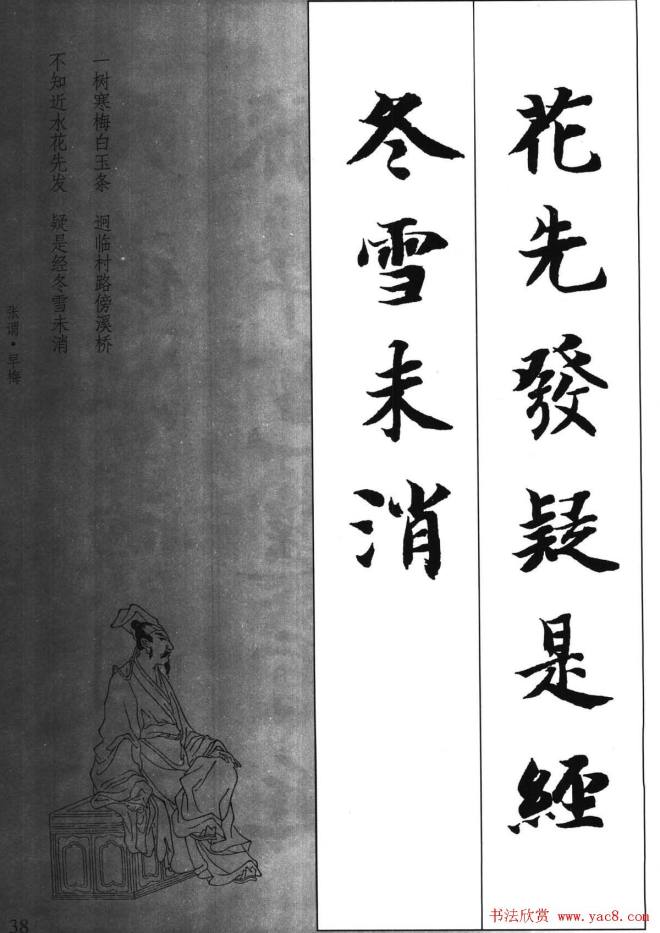 花先發疑是經
冬雪未消
一树寒梅白玉条　迥临村路傍溪桥
不知近水花先发　疑是经冬雪未消
张谓·早梅
38
书法欣赏 www.yac8.com